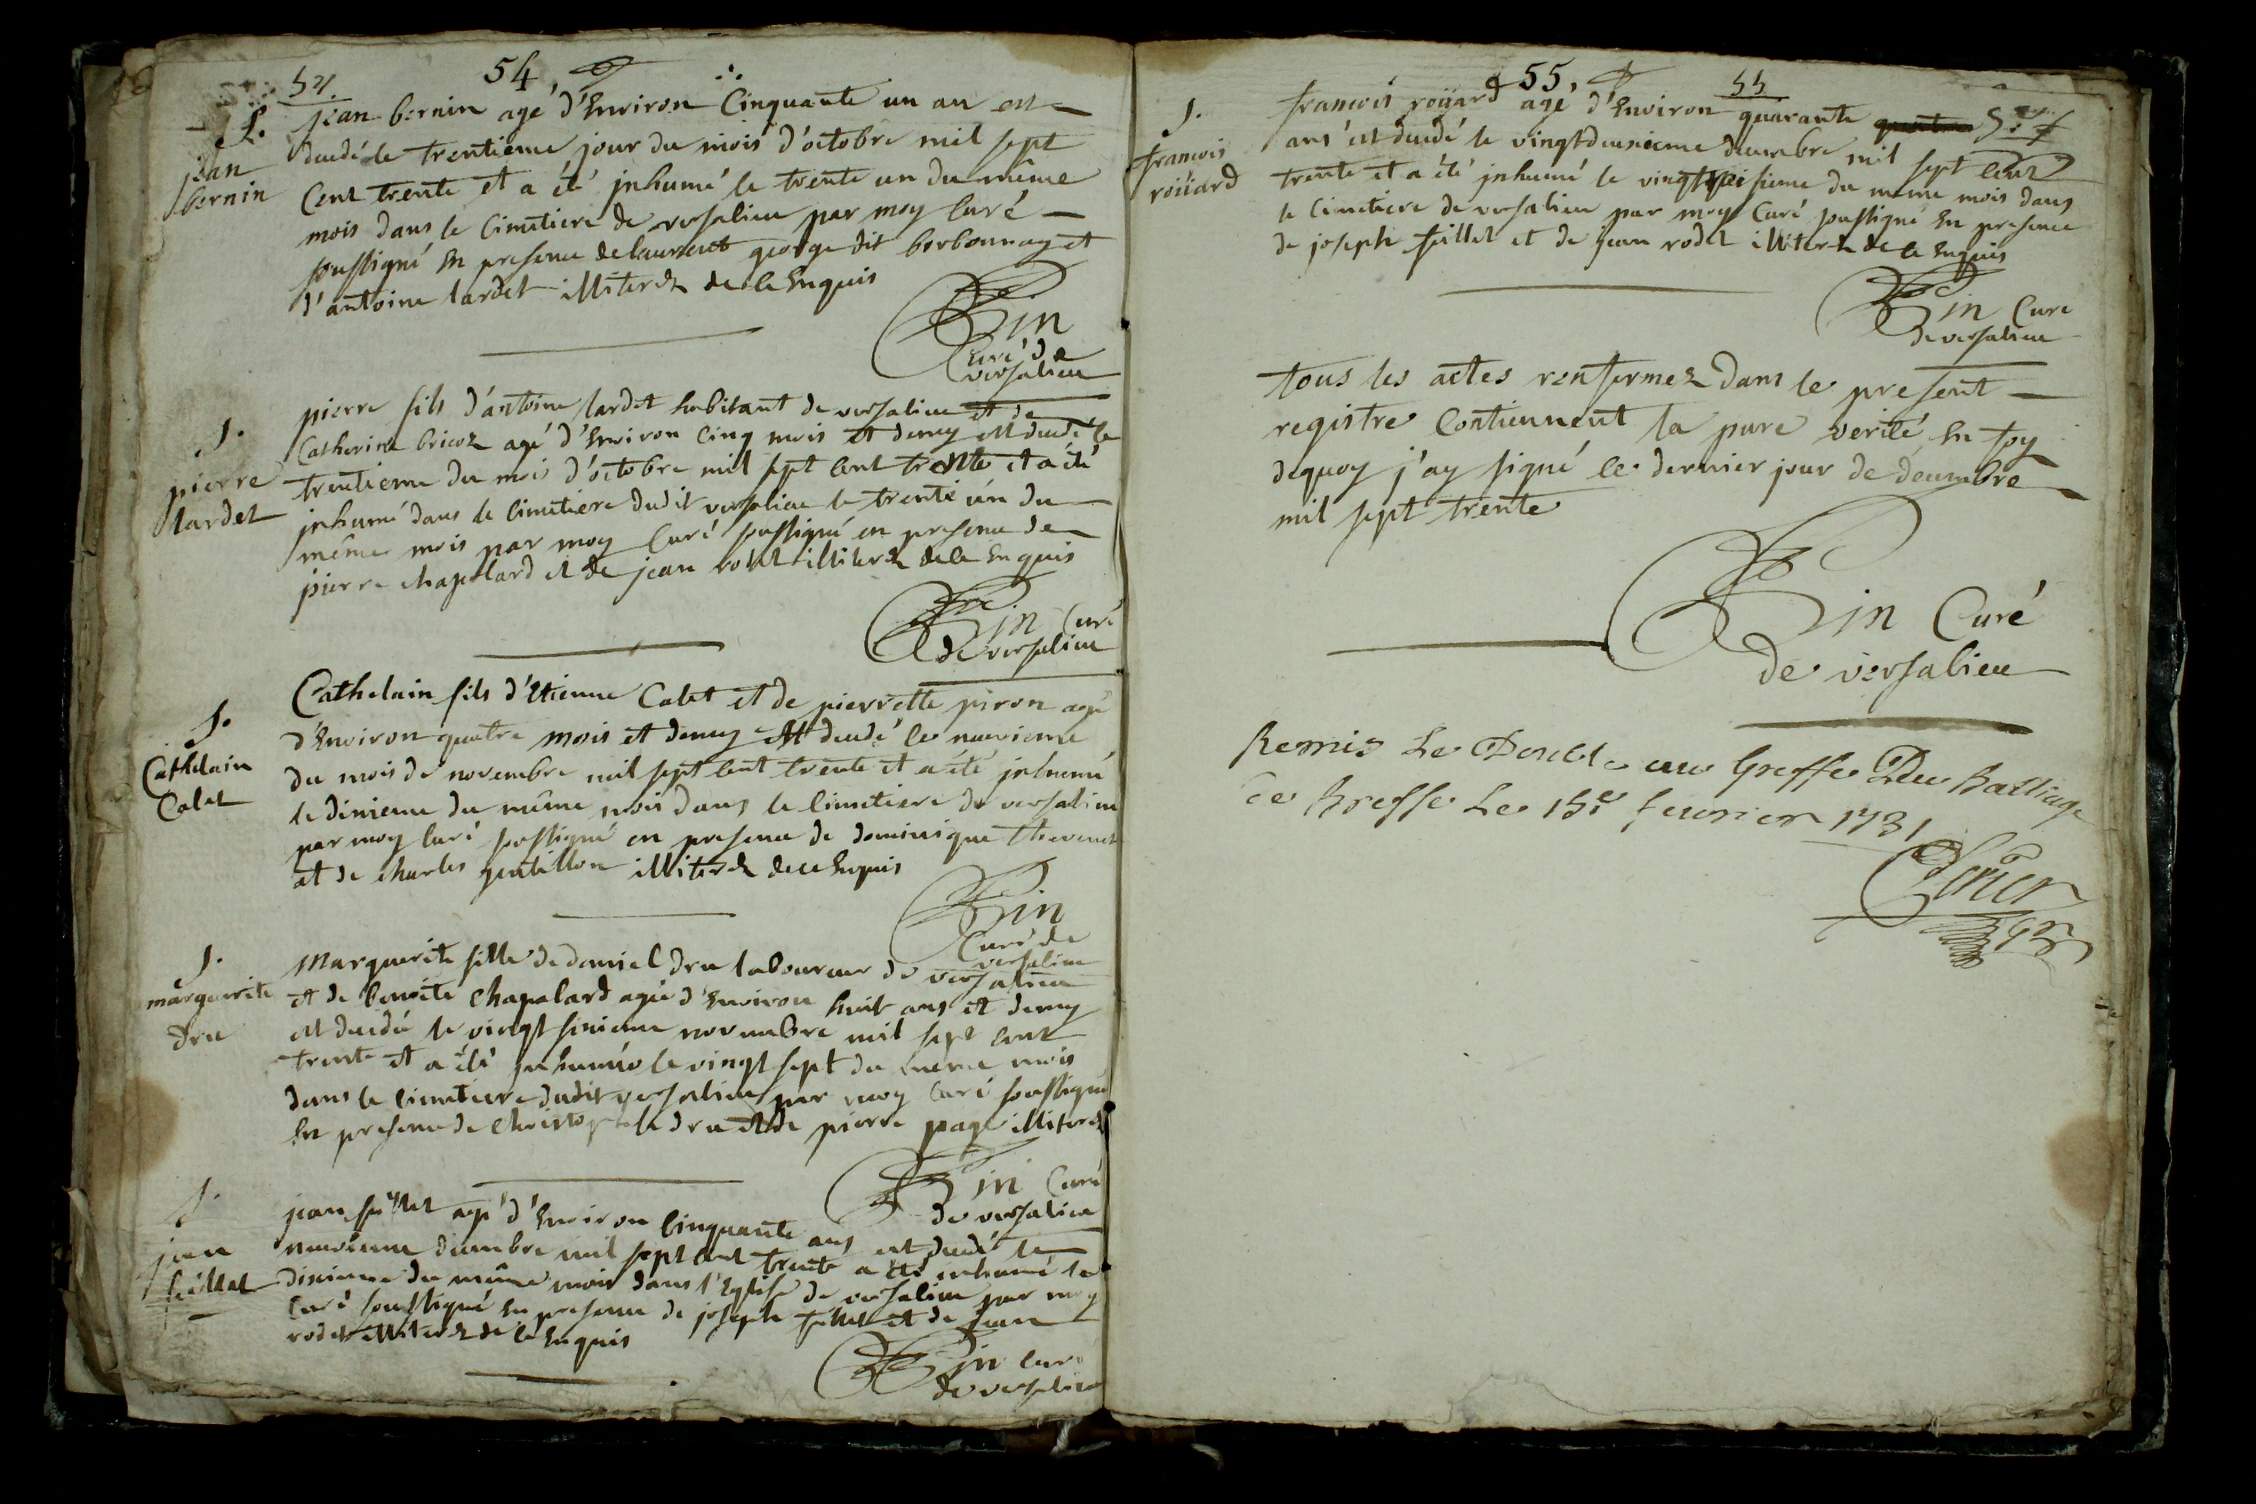 54.
54
S.
jean
bernin
jean bernin agé d'Environ Cinquante un an est
decedé le trentieme jour du mois d'octobre mil sept
Cent trente et a été jnhumé le trente un du même
mois dans le Cimetiere de versalieu par moy Curé
soussigné En presence de laurent george dit borbonnay et
d'antoine lardet illiterez de ce Enquis
Bin
Curé de
versalieu
S.
pierre
lardet
pierre fils d'antoine lardet habitant de versalieu et de
Catherine bricoz agé d'Environ Cinq mois et demy est decedé le
trentieme du mois d'octobre mil sept Cent trente et a été
jnhumé dans le Cimetiere dudit versalieu le trente un du
même mois par moy Curé soussigné en presence de
pierre chapelard et de jean rodet illiterez de ce Enquis
Bin Curé
de versalieu
S.
Cathelain
Calet
Cathelain fils d'Etienne Calet et de pierrette piron agé
d'Environ quatre mois et demy est decedé le neuvieme
du mois de novembre mil sept Cent trente et a été jnhumé
le dixieme du même mois dans le Cimetiere de versalieu
par moy Curé soussigné en presence de dominique thevenet
et de charles gentillon illiterez de ce Enquis
Bin
Curé de
versalieu
S.
marguerite
dru
Marguerite fille de daniel dru laboureur de versalieu
et de benoite Chapalard agée d'Environ huit ans et demy
est decedée le vingt sixieme novembre mil sept cent
trente et a été jnhumée le vingt sept du meme mois
dans le Cimetiere dudit versalieu par moy Curé soussigné
En presence de Christophle dru et de pierre page illiterez
Bin Curé
de versalieu
S.
jean
feillet
jean feillet agé d'Environ Cinquante ans est decedé le
neuvieme decembre mil sept Cent trente a été inhumé le
dixieme du même mois dans l'Eglise de versalieu par moy
Curé soussigné En presence de joseph feillet et de jean
rodet illiterez de ce Enquis
Bin Curé
de versalieu
55.
55
S.
francois
roüard
francois roüard agé d'Environ quarante
ans est decedé le vingtdeuxieme decembre mil sept Cent
trente et a été jnhumé le vingttroisieme du meme mois dans
le Cimetiere de versalieu par moy Curé soussigné En presence
de joseph feillet et de jean rodet illiterez de ce Enquis
Bin Curé
de versalieu
tous les actes renfermez dans le present
registre Contiennent la pure verité En foy
dequoy j'ay signé ce dernier jour de decembre
mil sept trente
Bin Curé
de versalieu
Remis Le Double au Greffe Du Bailliage
de Bresse Le 15e fevrier 1731